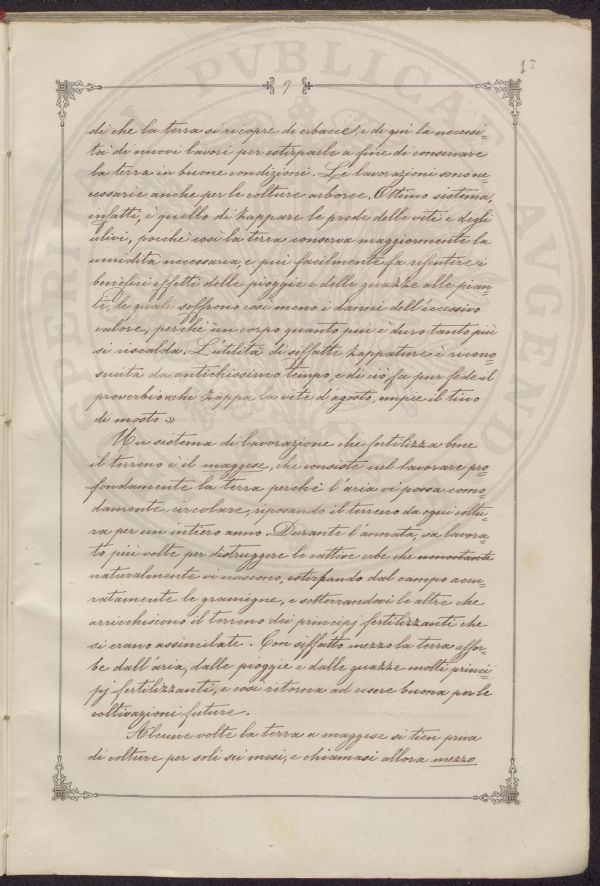 17
9
di che la terra si ricopre di erbacce, e di qui la necessi-
tà di nuovi lavori per estirparle a fine di conservare
la terra in buone condizioni. Le lavorazioni sono ne-
cessarie anche per le colture arboree. Ottimo sistema,
infatti, è quello di zappare le prode delle viti e degli
ulivi, poichè così la terra conserva maggiormente la
umidità necessaria e più facilmente fa risentire i
benefici effetti delle pioggie e delle guazze alle pian-
te, le quali soffrono così meno i danni dell'eccessivo
calore, perchè un corpo quanto più è duro tanto più
si riscalda. L'utilità di siffatte zappature è ricono-
sciuta da antichissimo tempo, e di ciò fa pur fede il
proverbio «chi zappa la vite d'agosto, empie il tino
di mosto.»
Un sistema di lavorazione che fertilizza bene
il terreno è il maggese, che consiste nel lavorare pro-
fondamente la terra perchè l'aria vi possa como-
damente circolare, riposando il terreno da ogni coltu-
ra per un intiero anno. Durante l'annata, va lavora-
to più volte per distruggere le cattive erbe che nonostante
naturalmente vi nascono, estirpando dal campo accu-
ratamente le gramigne, e sotterrandovi le altre che
arricchiscono il terreno dei principj fertilizzanti che
si erano assimilate. Con siffatto mezzo la terra assor-
be dall'aria, dalle pioggie e dalle guazze molti princi-
pj fertilizzanti, e così ritorna ad essere buona per le
coltivazioni future.
Alcune volte la terra a maggese si tien priva
di colture per soli sei mesi, e chiamasi allora mezzo
PERIANDI PVBLICAE AVGENDO